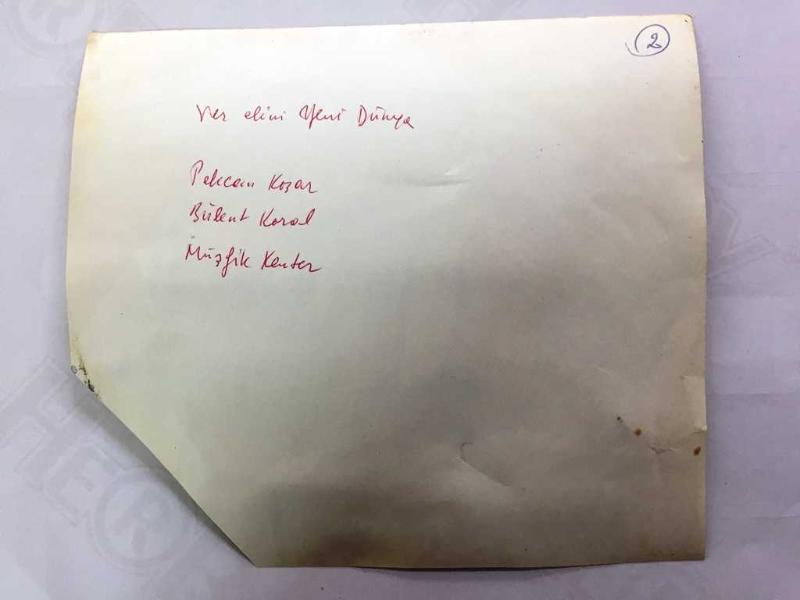 2
Ver elini Yeni Dünya
Pekcan Koşar
Bülent Koral
Müşfik Kenter